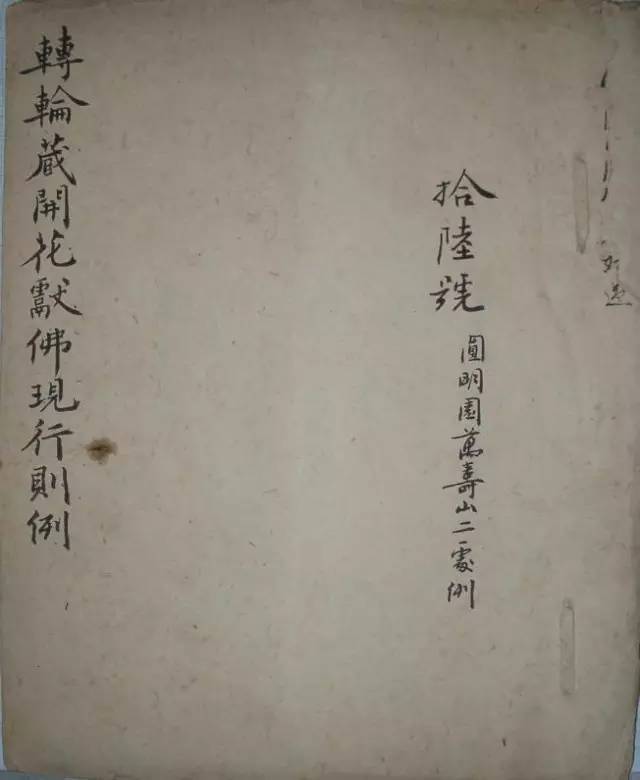 拾陸號 圓明園萬壽山二處例
轉輪藏開花獻佛現行則例